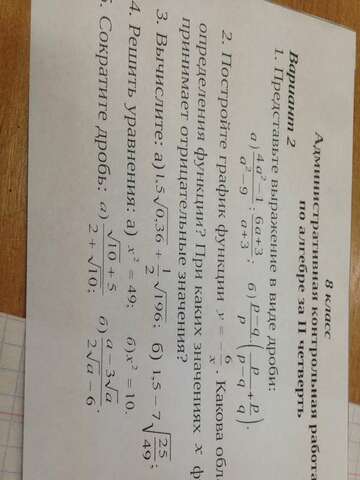 8 класс
Административная контрольная работа
по алгебре за II четверть
Вариант 2
1. Представьте выражение в виде дроби:
а) (4a² − 1)/(a² − 9) : (6a + 3)/(a + 3); б) (p − q)/p · (p/(p − q) + p/q).
2. Постройте график функции y = −6/x. Какова обл
определения функции? При каких значениях x ф
принимает отрицательные значения?
3. Вычислите: а) 1,5√0,36 + 1/2 √196; б) 1,5 − 7√(25/49);
4. Решить уравнения: а) x² = 49; б) x² = 10.
5. Сократите дробь: а) (√10 + 5)/(2 + √10); б) (a − 3√a)/(2√a − 6);